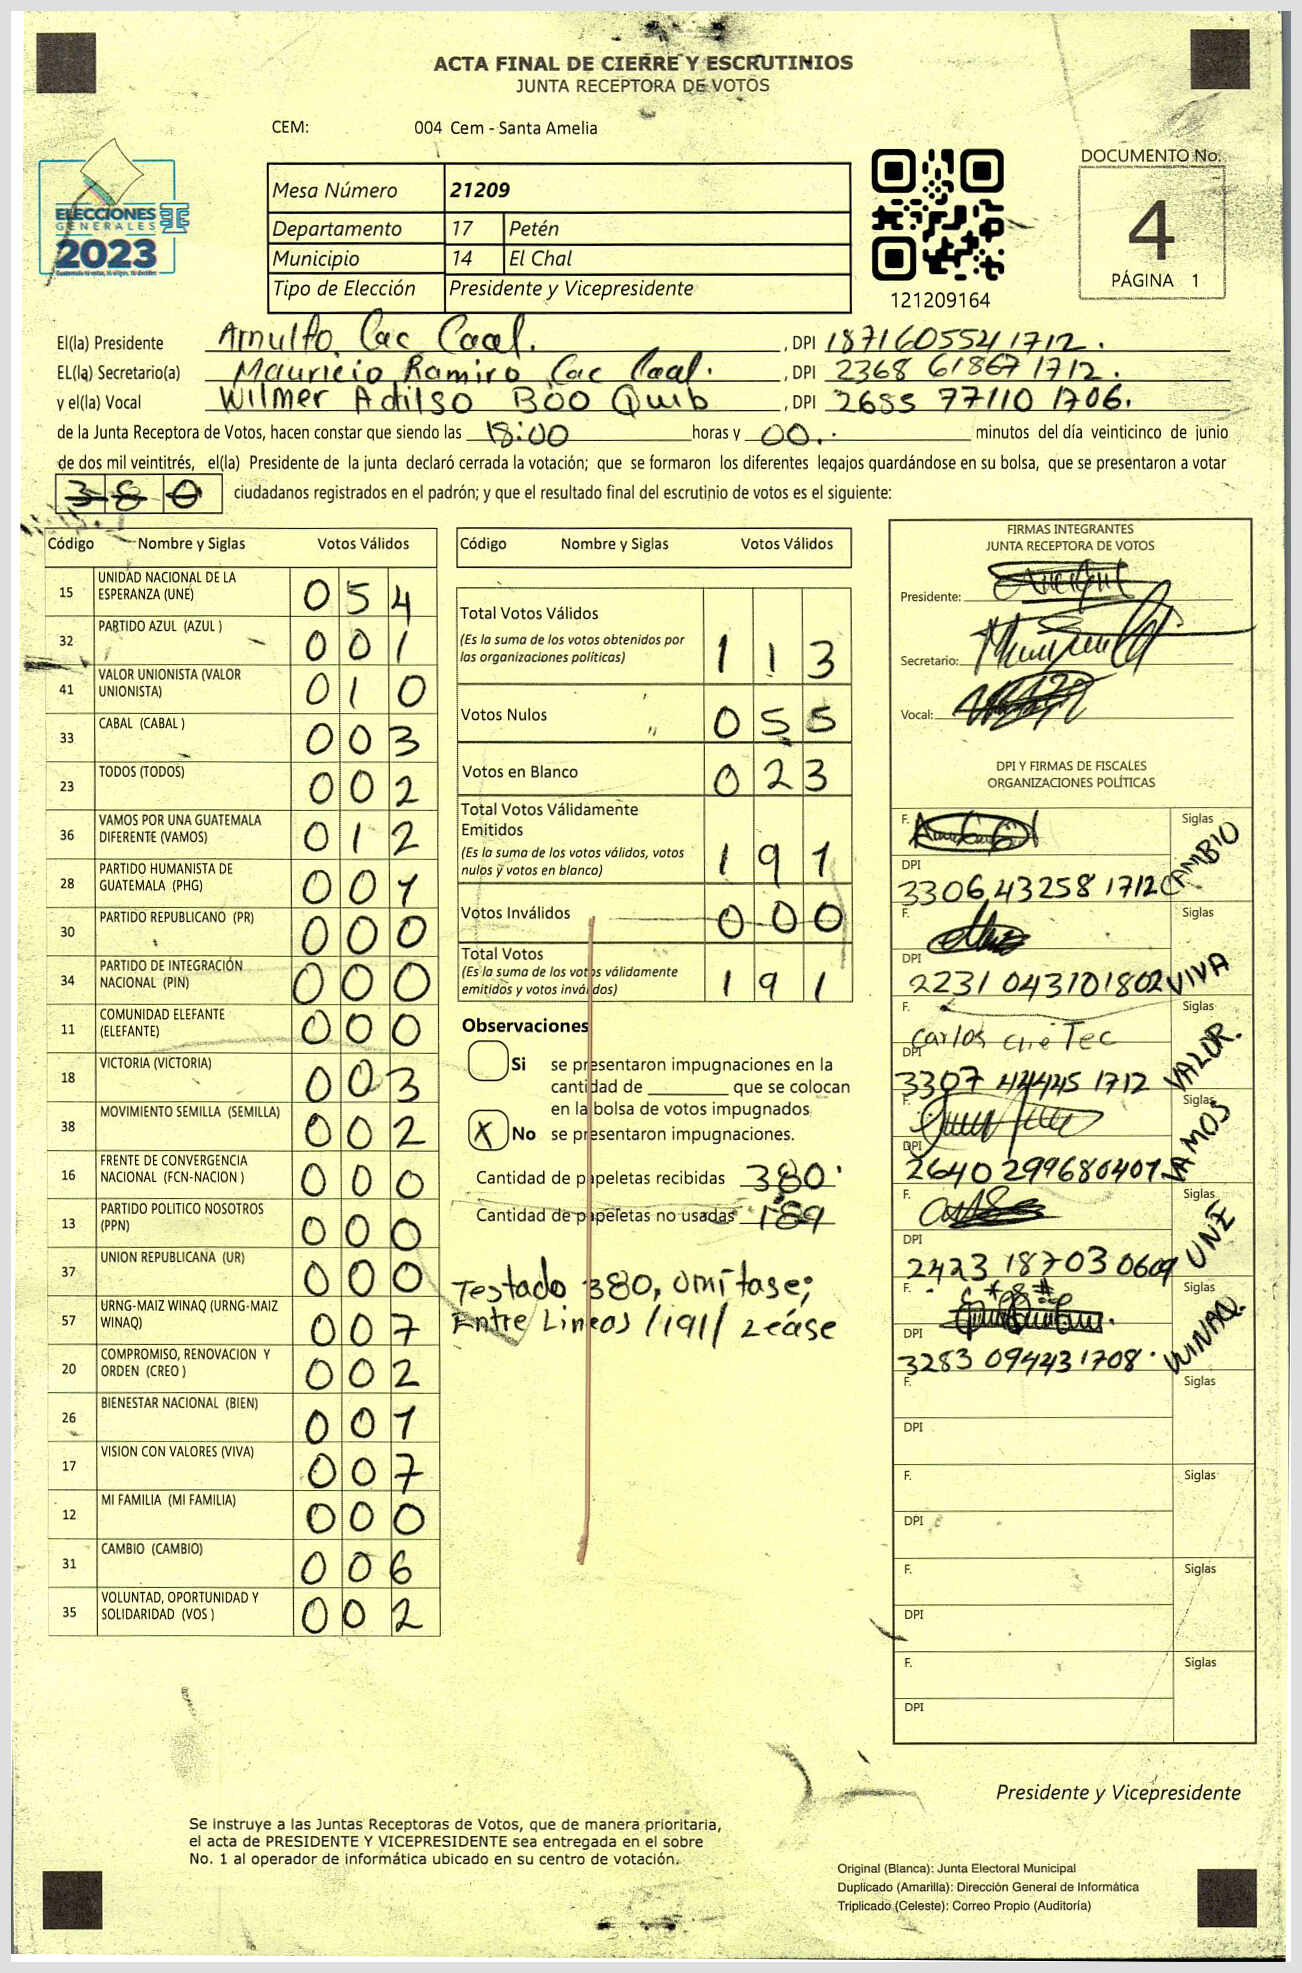 ACTA FINAL DE CIERRE Y ESCRUTINIOS
JUNTA RECEPTORA DE VOTOS
CEM: 004 Cem - Santa Amelia
ELECCIONES
GENERALES
2023
Mesa Número 21209
Departamento 17 Petén
Municipio 14 El Chal
Tipo de Elección Presidente y Vicepresidente
121209164
DOCUMENTO No.
4
PÁGINA 1
El(la) Presidente Arnulfo Cac Caal. , DPI 1871605541712.
EL(la) Secretario(a) Mauricio Ramiro Cac Caal. , DPI 2368 61867 1712.
y el(la) Vocal Wilmer Adilso Boo Quib , DPI 2655 77110 1706.
de la Junta Receptora de Votos, hacen constar que siendo las 18:00 horas y 00. minutos del día veinticinco de junio
de dos mil veintitrés, el(la) Presidente de la junta declaró cerrada la votación; que se formaron los diferentes legajos guardándose en su bolsa, que se presentaron a votar
380 ciudadanos registrados en el padrón; y que el resultado final del escrutinio de votos es el siguiente:
Código Nombre y Siglas Votos Válidos
15 UNIDAD NACIONAL DE LA ESPERANZA (UNE) 054
32 PARTIDO AZUL (AZUL ) 001
41 VALOR UNIONISTA (VALOR UNIONISTA) 010
33 CABAL (CABAL ) 003
23 TODOS (TODOS) 002
36 VAMOS POR UNA GUATEMALA DIFERENTE (VAMOS) 012
28 PARTIDO HUMANISTA DE GUATEMALA (PHG) 001
30 PARTIDO REPUBLICANO (PR) 000
34 PARTIDO DE INTEGRACIÓN NACIONAL (PIN) 000
11 COMUNIDAD ELEFANTE (ELEFANTE) 000
18 VICTORIA (VICTORIA) 003
38 MOVIMIENTO SEMILLA (SEMILLA) 002
16 FRENTE DE CONVERGENCIA NACIONAL (FCN-NACION ) 000
13 PARTIDO POLITICO NOSOTROS (PPN) 000
37 UNION REPUBLICANA (UR) 000
57 URNG-MAIZ WINAQ (URNG-MAIZ WINAQ) 007
20 COMPROMISO, RENOVACION Y ORDEN (CREO ) 002
26 BIENESTAR NACIONAL (BIEN) 001
17 VISION CON VALORES (VIVA) 007
12 MI FAMILIA (MI FAMILIA) 000
31 CAMBIO (CAMBIO) 006
35 VOLUNTAD, OPORTUNIDAD Y SOLIDARIDAD (VOS ) 002
Código Nombre y Siglas Votos Válidos
Total Votos Válidos
(Es la suma de los votos obtenidos por las organizaciones políticas) 113
Votos Nulos 055
Votos en Blanco 023
Total Votos Válidamente Emitidos
(Es la suma de los votos válidos, votos nulos y votos en blanco) 191
Votos Inválidos 000
Total Votos
(Es la suma de los votos válidamente emitidos y votos inválidos) 191
Observaciones
Si se presentaron impugnaciones en la
cantidad de ________ que se colocan
en la bolsa de votos impugnados
X No se presentaron impugnaciones.
Cantidad de papeletas recibidas 380
Cantidad de papeletas no usadas 189
Testado 380, omítase;
Entre Lineas /191/ Léase
FIRMAS INTEGRANTES
JUNTA RECEPTORA DE VOTOS
Presidente:
Secretario:
Vocal:
DPI Y FIRMAS DE FISCALES
ORGANIZACIONES POLÍTICAS
F. Siglas
DPI 3306 43258 1712 CAMBIO
F. Siglas
DPI 2231 043101802 VIVA
F. Carlos Siglas
DPI 3307 44445 1712 VALOR.
F. Siglas
DPI 2640 299680407 VAMOS
F. Siglas
DPI 2423 18703 0609 UNE
F. Siglas
DPI 3283 094431708. WINAQ.
F. Siglas
DPI
F. Siglas
DPI
F. Siglas
DPI
F. Siglas
DPI
Presidente y Vicepresidente
Se instruye a las Juntas Receptoras de Votos, que de manera prioritaria,
el acta de PRESIDENTE Y VICEPRESIDENTE sea entregada en el sobre
No. 1 al operador de informática ubicado en su centro de votación.
Original (Blanca): Junta Electoral Municipal
Duplicado (Amarilla): Dirección General de Informática
Triplicado (Celeste): Correo Propio (Auditoría)